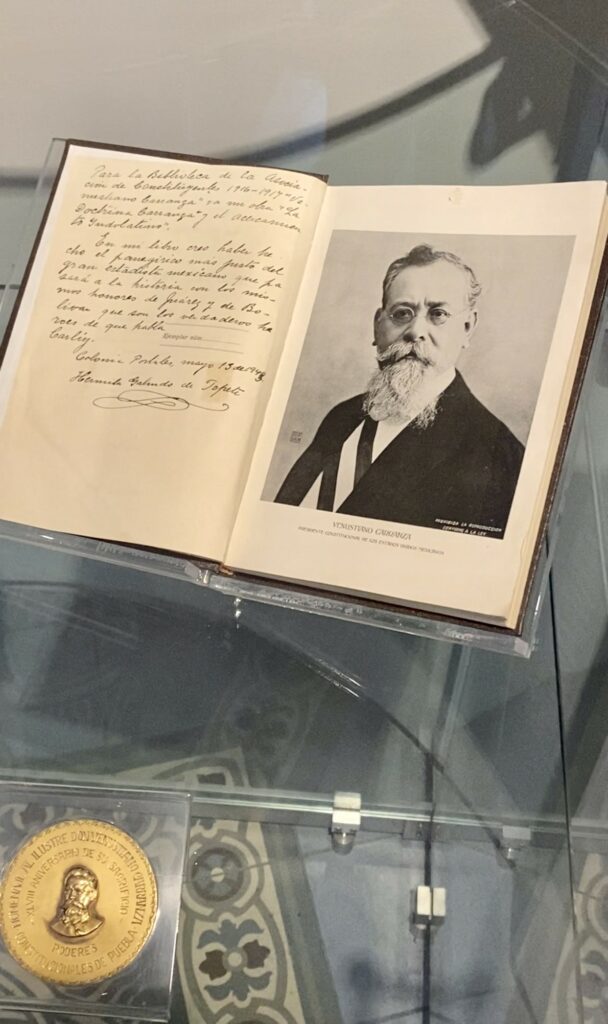 Para la Biblioteca de la Asocia-
ción de Constituyentes 1916-1917 "Ve-
nustiano Carranza" va mi obra "La
Doctrina Carranza" y el acercamien
to Indolatino".
En mi libro creo haber he-
cho el panegírico mas justo del
gran estadista mexicano que pa
sará a la historia con los mis-
mos honores de Juárez y de Bo-
lívar que son los verdaderos hé
roes de que habla
Ejemplar núm.
Carlyg.
Colonia Portales, mayo 13 de
Hermila Galindo de Topete
VENUSTIANO CARRANZA
PRESIDENTE CONSTITUCIONAL DE LOS ESTADOS UNIDOS MEXICANOS
PROHIBIDA LA REPRODUCCION
CONFORME A LA LEY
HOMENAJE AL ILUSTRE DON VENUSTIANO CARRANZA
XLVIII ANIVERSARIO DE SU SACRIFICIO
PODERES
CONSTITUCIONALES DE PUEBLA